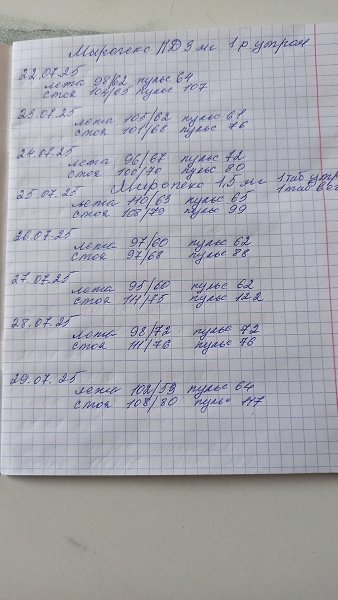 Мирапекс ПД 3 мг 1 р утром
22.07.25
лежа 98/62 пульс 64
стоя 104/65 пульс 107
23.07.25
лежа 105/62 пульс 61
стоя 101/68 пульс 76
24.07.25
лежа 96/67 пульс 72
стоя 100/70 пульс 80
Мирапекс 1,5 мг 1 таб утр
25.07.25 1 таб веч
лежа 110/63 пульс 65
стоя 108/79 пульс 99
26.07.25
лежа 97/60 пульс 62
стоя 97/68 пульс 88
27.07.25
лежа 95/60 пульс 62
стоя 114/75 пульс 122
28.07.25
лежа 98/72 пульс 72
стоя 111/76 пульс 76
29.07.25
лежа 102/59 пульс 64
стоя 108/80 пульс 117